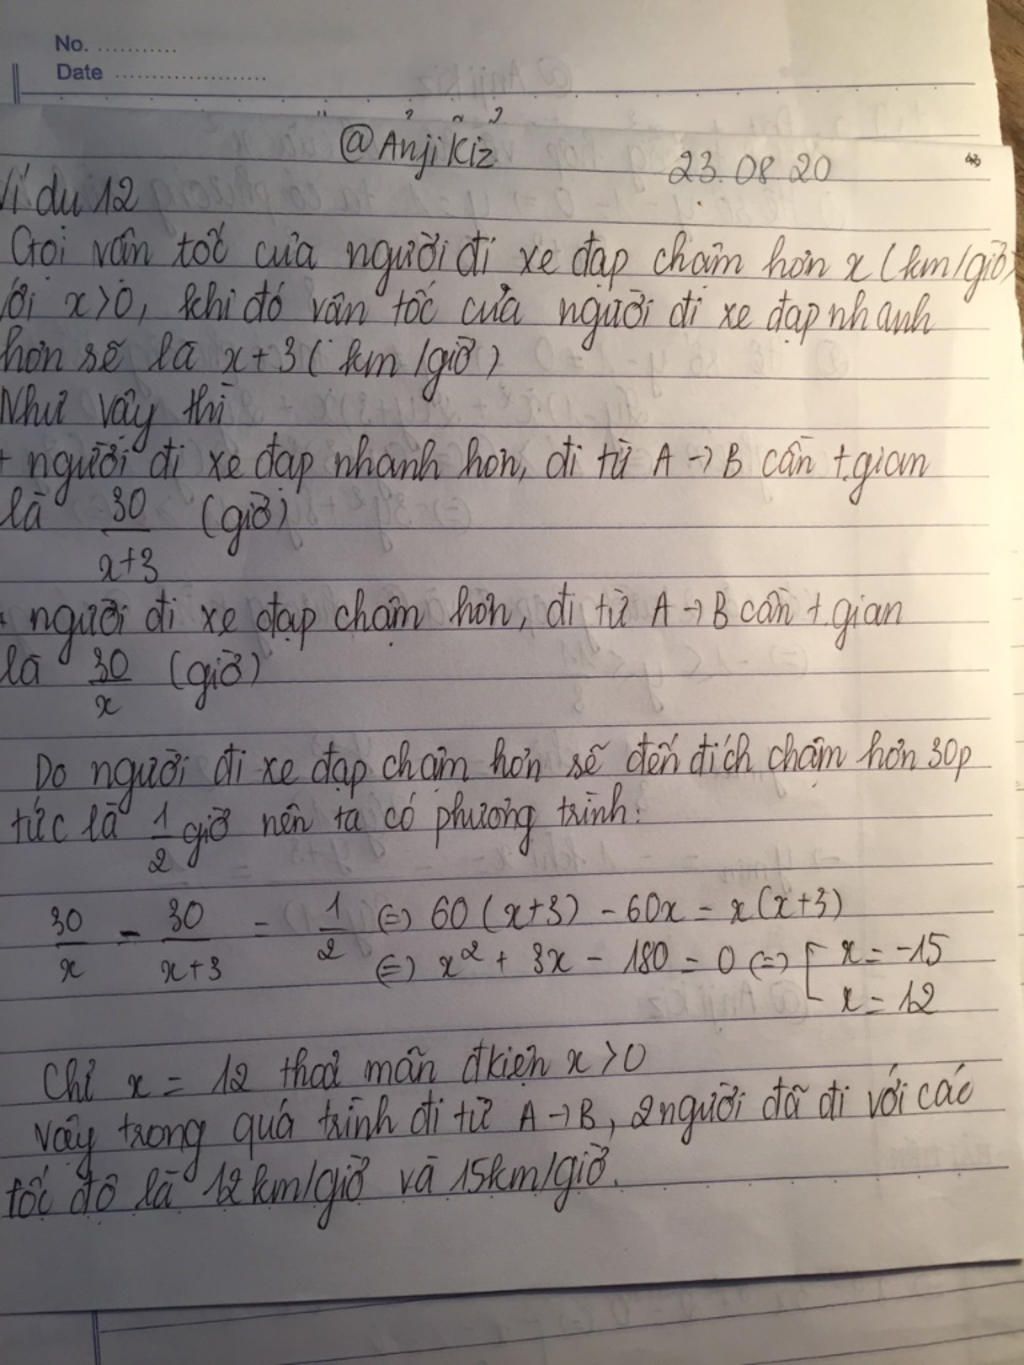 No. ...........
Date .....................
@AnjiKiz 23.08.20
Ví dụ 12
Gọi vận tốc của người đi xe đạp chậm hơn x (km/giờ)
với x>0, khi đó vận tốc của người đi xe đạp nhanh
hơn sẽ là x+3 (km/giờ)
Như vậy thì
+ người đi xe đạp nhanh hơn, đi từ A→B cần t.gian
là 30/(x+3) (giờ)
+ người đi xe đạp chậm hơn, đi từ A→B cần t.gian
là 30/x (giờ)
Do người đi xe đạp chậm hơn sẽ đến đích chậm hơn 30p
tức là 1/2 giờ nên ta có phương trình:
30/x - 30/(x+3) = 1/2 (=) 60(x+3) - 60x = x(x+3)
(=) x² + 3x - 180 = 0 (=) [ x = -15
x = 12
Chỉ x = 12 thoả mãn đkiện x>0
Vậy trong quá trình đi từ A→B, 2 người đã đi với các
tốc độ là 12km/giờ và 15km/giờ.